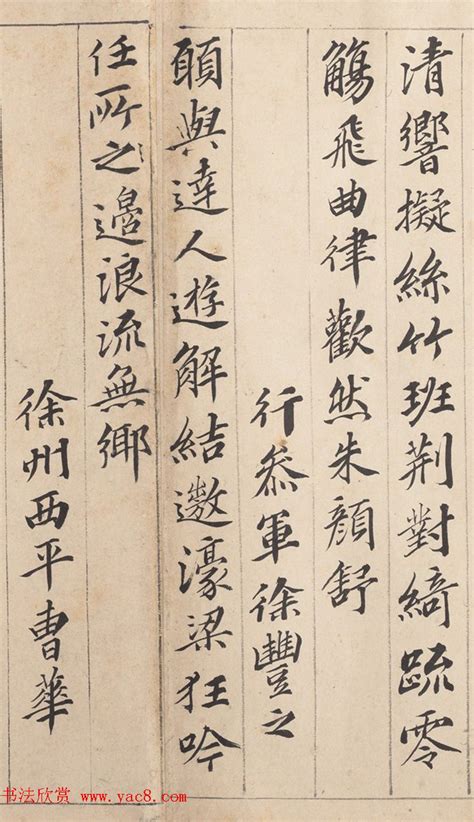 清響擬絲竹班荆對綺䟽零
觴飛曲律歡然朱顔舒
行叅軍徐豐之
頋與達人遊解結遨濠梁狂吟
任所之邉浪流無鄉
徐州西平曹華
书法欣赏 www.yac8.com